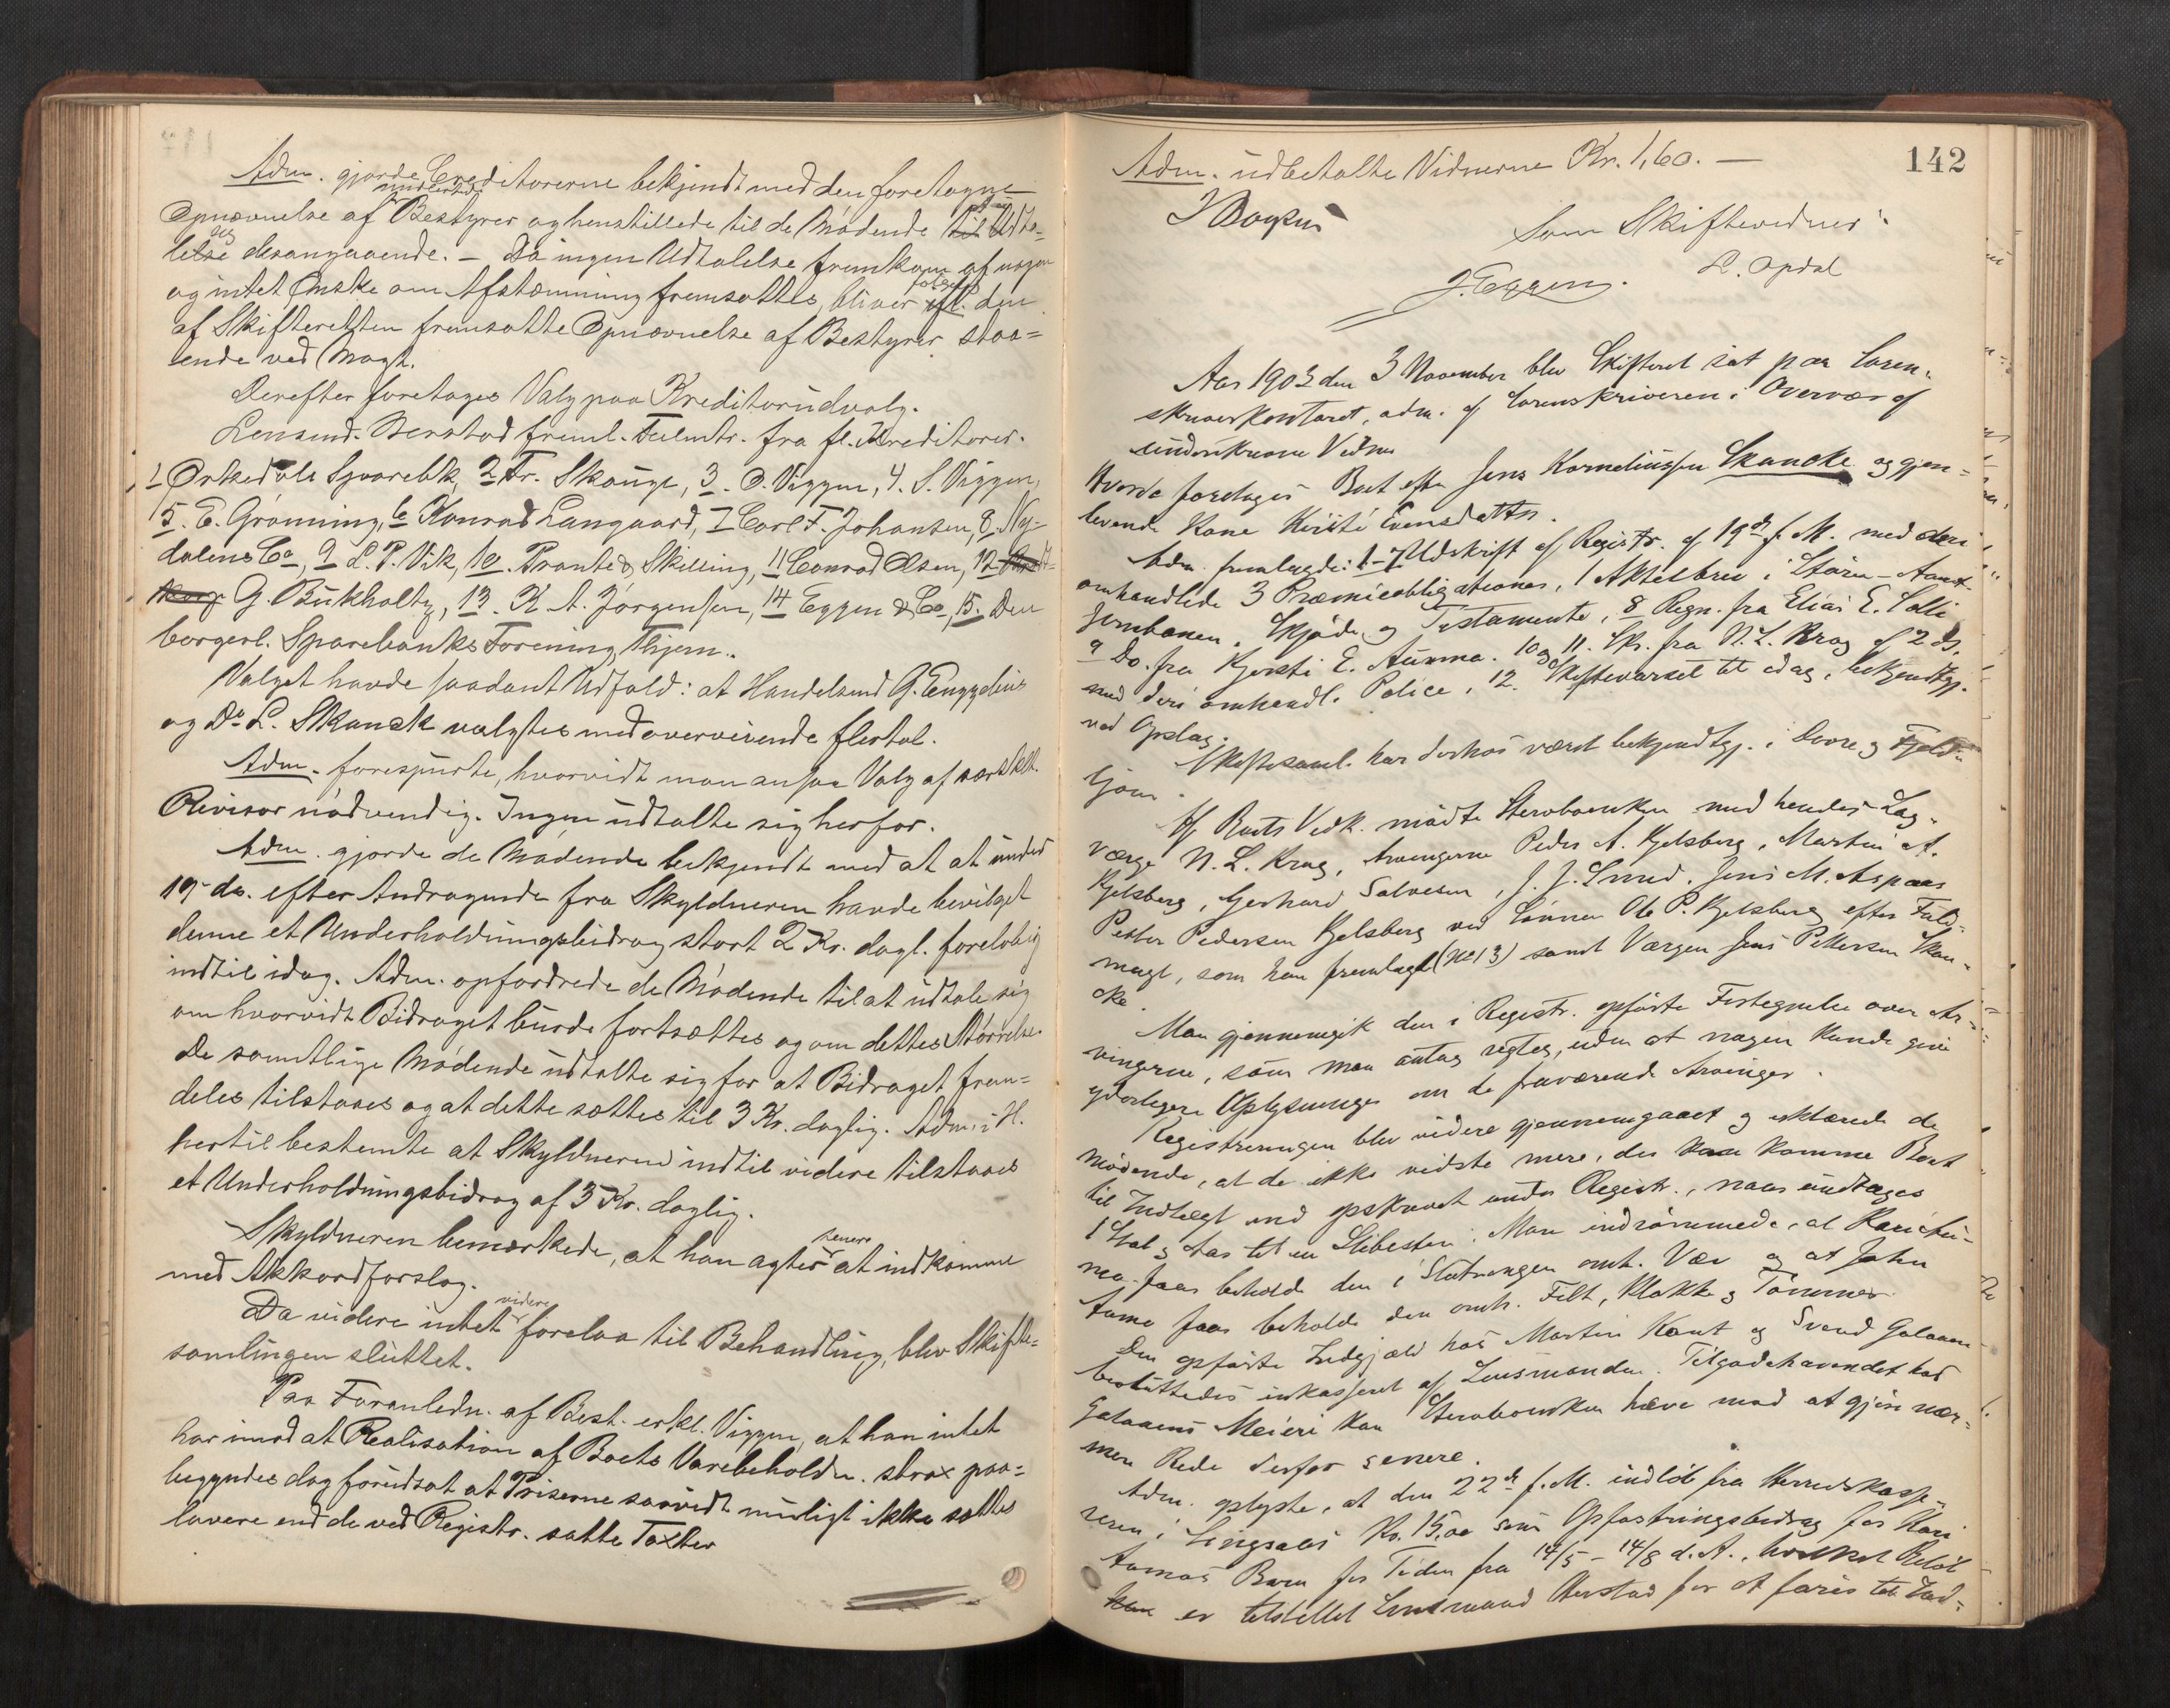 Adm. gjorde Creditorerne bekjendt med den foretagne
Opnævnelse af Bestyrer og henstillede til de Mødende til Udta-
lelse desangaaende. – Da ingen Udtalelse fremkom af nogen
og intet Ønske om Afstemning fremsattes, bliver den
af Skifteretten fremsatte Opnævnelse af Bestyrer staa=
ende ved Magt.
Derefter foretages Valg paa Kreditorudvalg.
Lensmd. Nerstad freml. Fuldm. fra fl. Kreditorer.
1 Orkedals Sparebk, 2 Fr. Skauge, 3. O. Viggen, 4. S. Viggen,
5. E. Grønning, 6 Konrad Langaard, 7 Carl F. Johansen, 8. Ny-
dalens Co, 9 L. P. Vik, 10. Brante & Skilling, 11 Conrad Olsen, 12
G. Bukholtz, 13. K A. Jørgensen, 14 Eggen & Co, 15. Den
borgerl. Sparebanks Forening, Thjem.
Valget havde saadant Udfald: at Handelsmd G. Engzelius
og Do L. Skanck valgtes med overveiende flertal.
Adm. forespurte, hvorvidt man ansaa Valg af særskilt
Revisor nødvendig. Ingen udtalte sig herfor.
Adm. gjorde de Mødende bekjendt med at at under
19 ds. efter Andragende fra Skyldneren havde bevilget
denne et Underholdningsbidrag stort 2 Kr. dagl. foreløbig
indtil idag. Adm. opfordrede de Mødende til at udtale sig
om hvorvidt Bidraget burde fortsættes og om dettes Størrelse
De samtlige Mødende udtalte sig for at Bidraget frem=
deles tilstaaes og at dette sættes til 3 Kr. daglig. Adm. i H.
hertil bestemte at Skyldneren indtil videre tilstaaes
et Underholdningsbidrag af 3 Kr. daglig.
Skyldneren bemærkede, at han agter senere at indkomme
med Akkordforslag.
Da videre intet videre forelaa til Behandling, blev Skifte=
samlingen sluttet.
Paa Foranledn. af Best. erkl. Viggen, at han intet
har imod at Realisation af Boets Varebeholdn. strax paa=
begyndes dog forudsat at Priserne saavidt muligt ikke sættes
lavere end de ved Registr. satte Taxter
142
Adm. udbetalte Vidnerne Kr. 1,60. —
Som Skiftevidner:
L. Opdal
J. Eggen.
Aar 1903 den 3 November blev Skifteret sat paa Soren-
skriverkontoret, adm. af Sorenskriveren i Overvær af
underskrevne Vidner
Hvorda foretoges Boet efter Jens Korneliussen Skancke og gjen=
levende Kone Kirsti Evensdatter.
Adm. fremlagde: 1-7 Udskrift af Registr. af 19de f. M. med deri
omhandlede 3 Præmieobligationer, 1 Aktiebrev i Støren-Aamot
Jernbanen, Skjøde og Testamente, 8 Regn. fra Elias E. Solli
9 Do. fra Kjersti E. Aunmo. 10 og 11. Skr. fra N. L. Krog af 2 ds.
med deri omhandl. Police, 12. Skiftevarsel til idag, bekjendtgj.
ved Opslag.
Skiftesaml. har derhos været bekjendtgj. i Dovre og Fjeld-
ljom.
Af Boets Vedk. mødte Stervboenken med hendes Lag-
værge N. L. Krog, Arvingerne Peder A. Kjelsberg, Martin A.
Kjelsberg, Gerhard Salvesen, J. J. Smed, Jens M. Aspaas
Petter Pedersen Kjelsberg ved Sønnen Ole P. Kjelsberg efter Fuld-
magt, som han fremlagde (No 13) samt Værgen Jens Pettersen Skan-
cke.
Man gjennemgik den i Registr. opførte Fortegnelse over Ar-
vingerne, som man antog rigtig, uden at nogen kunde give
yderligere Oplysninger om de fraværende Arvinger.
Registreringen blev videre gjennemgaaet og erklærede de
mødende, at de ikke vidste mere, der kan komme Boet
til Indtægt end opskrevet under Registr., naar undtages
1 Stal og Aas til en Slibesten. Man indrømmede, at Kari
faar beholde den i Slutningen omh. Væv og at John
Aune faar beholde den omh. Felt, Klokke og Tømmer.
Den opførte Indgjæld hos Martin Kant og Svend Galaaen
besluttedes inkasseret af Lensmanden. Tilgodehavendet hos
Galaaens Meieri kan Stervboenken hæve mod at gjøre nær-
mere Rede derfor senere.
Adm. oplyste, at den 22de f. M. indløb fra Herredskasse-
reren i Singsaas Kr. 15,00 som Opfostringsbidrag for Kari
Aunas Barn for Tiden fra 14/5 – 14/8 d. A., hvilket Beløb
er tilstillet Lensmand Nerstad for at føres til Ind-